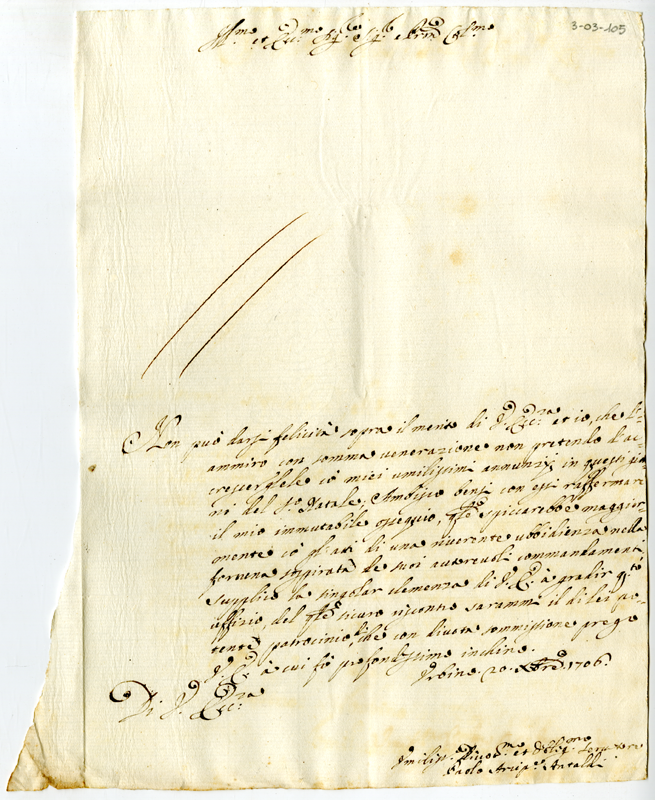 3-03-105
Ill.mo et Ecc.mo Sig.re
Non può darsi felicità sopra il merito di V. Ecc.za et io, che l'
ammiro con somma venerazione non pretendo d'ac-
crescerglele cò miei umilissimi annunzij in questi gior-
ni del S.o Natale, Ambisco bensì con essi raffermare
il mio immutabile ossequio, spiccarebbe maggior-
mente cò gli atti di una riverente ubbidienza nella
fortuna sospirata de suoi autorevoli commandamenti
Supplico la singolar clemenza di V. E. à gradir q.to
uffizio, del sicuro riscontro sarammi il di lei po-
tente patrocinio, che con divota sommissione prego
V. E. à cui fò profondissimo inchino.
Urbino 20. Xbre 1706.
Di V. Ecc.za
Umiliss.o et
Paolo Antaldi